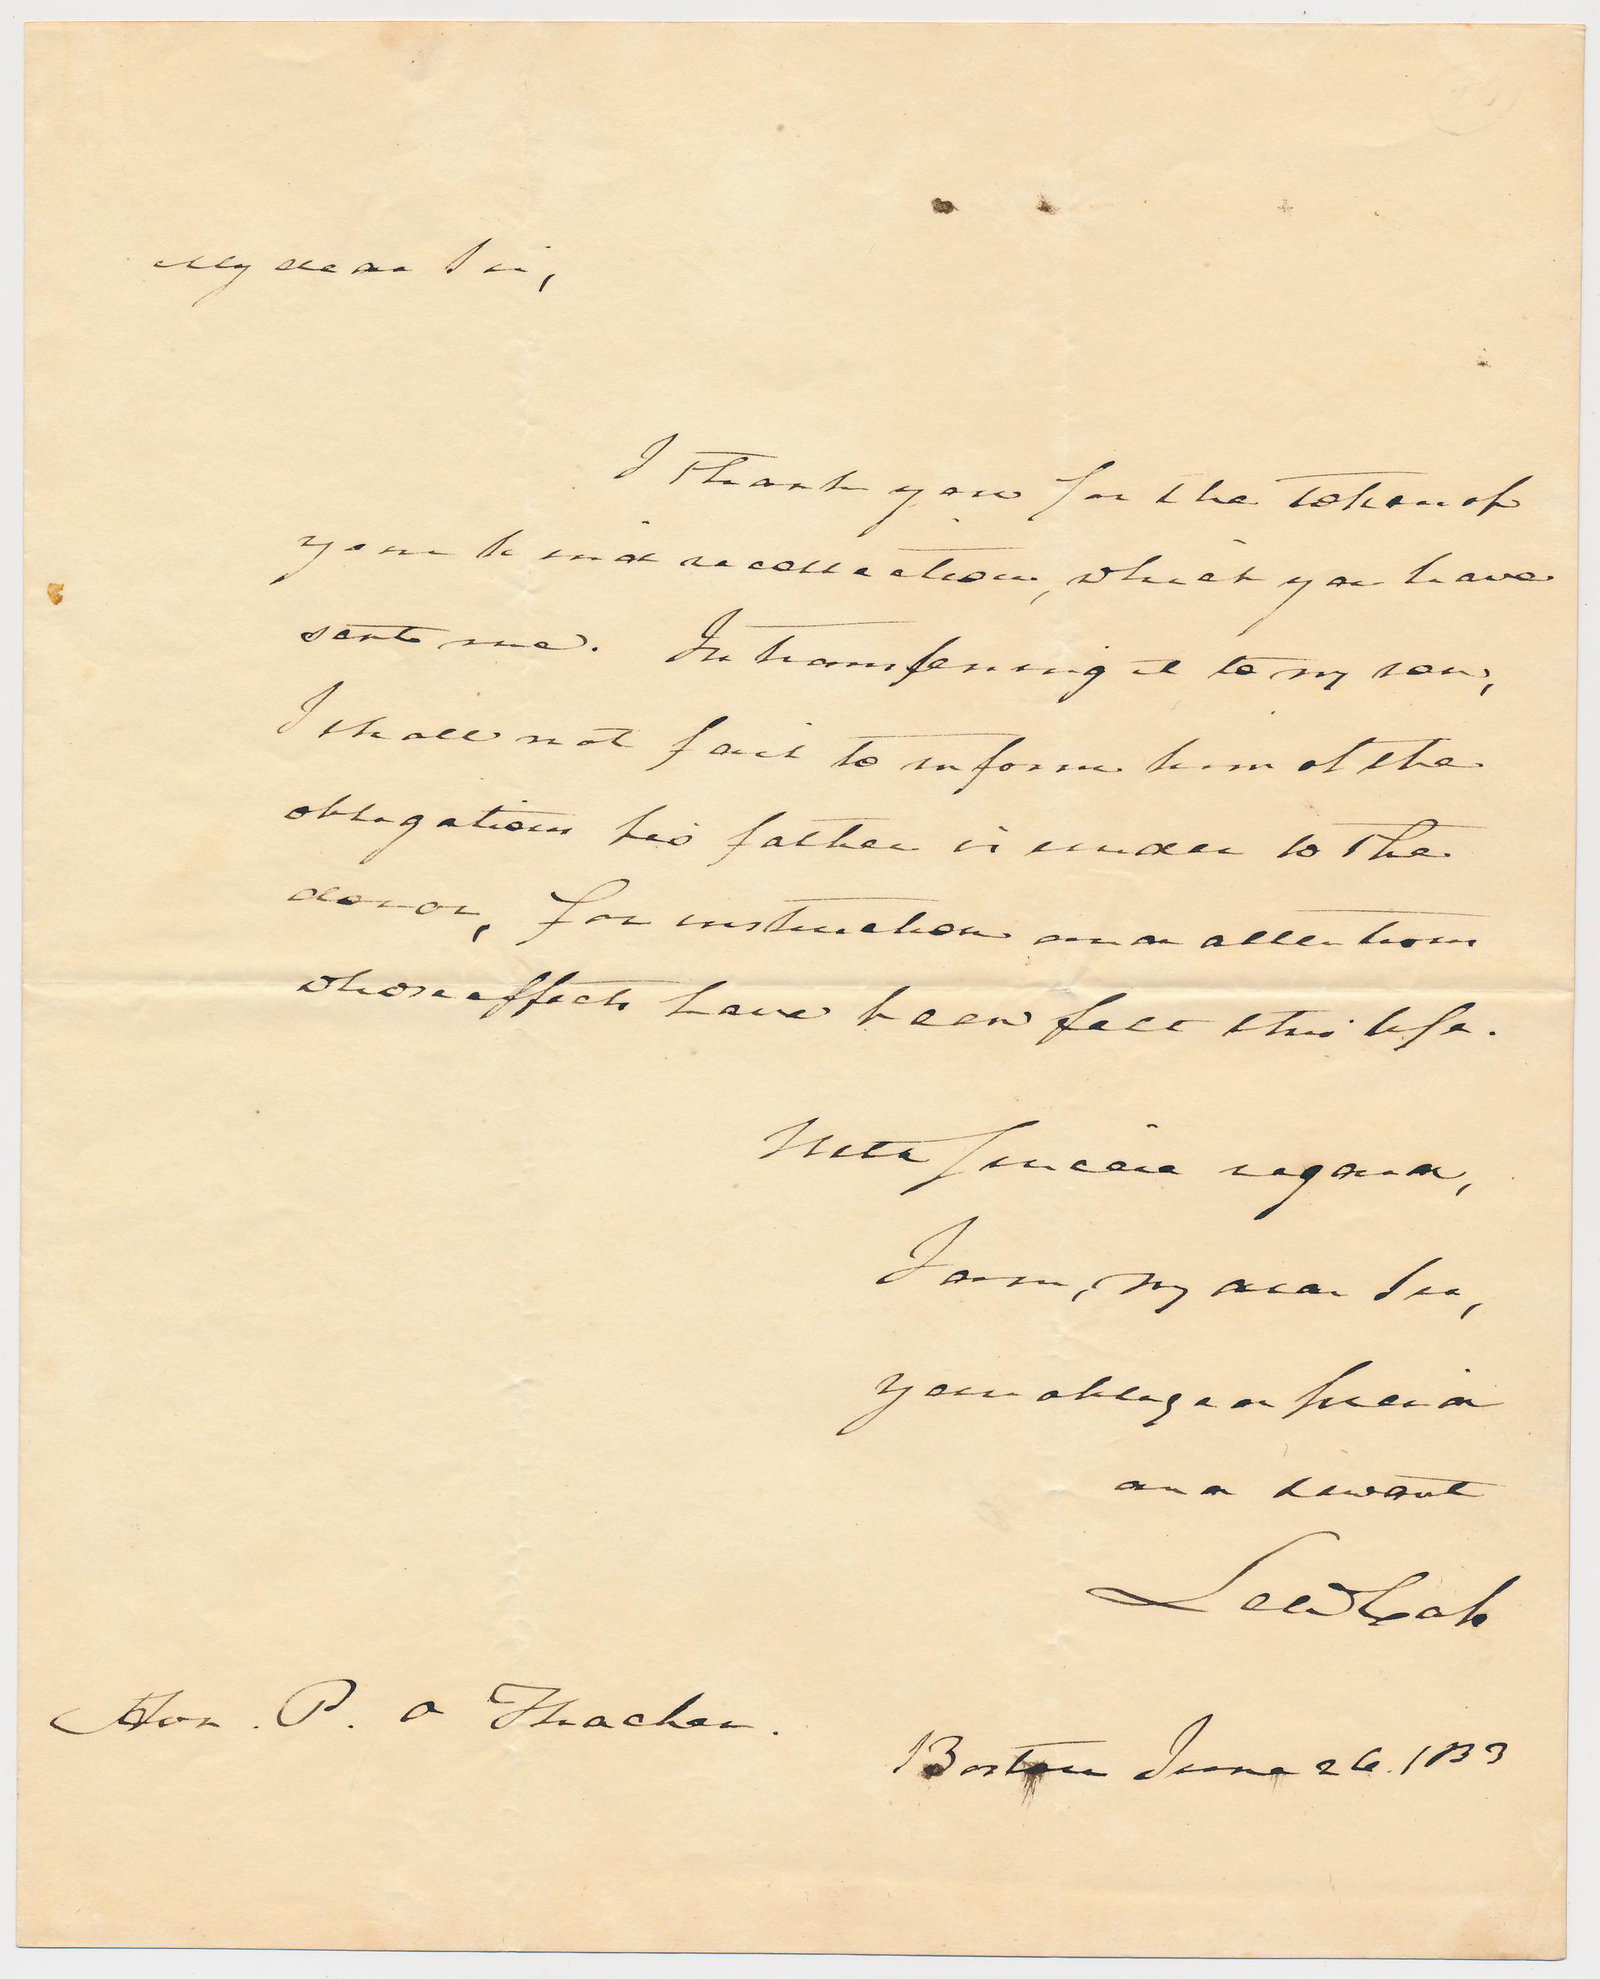 My dear Sir,
I thank you for the token of
your kind recollection, which you have
sent me. In transferring it to my son,
I shall not fail to inform him of the
obligations his father is under to the
donor, for instruction and attentions
whose effects have been felt thro' life.
With sincere regard,
I am, my dear Sir,
your obliged friend
and servant
Lew Cass
Hon. P. O Thacher.
Boston June 26. 1833